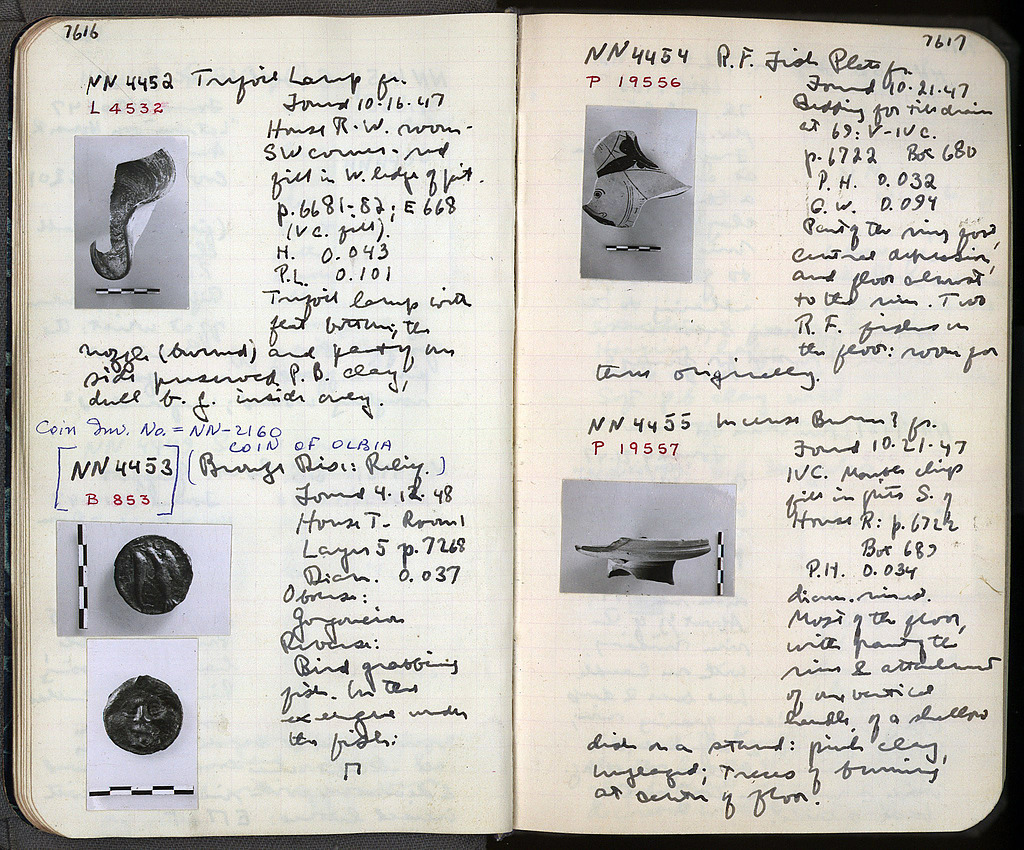 7616
NN 4452 Trefoil Lamp fr.
L 4532
Found 10-16-47
House R. W. room-
SW corner - red
fill in W. ledge of pit.
p. 6681-82; E 668
(IV c. fill).
H. 0.043
P.L. 0.101
Trefoil lamp with
flat bottom; the
nozzle (burned) and part of one
side preserved. P. B. clay,
dull b. g. inside only.
Coin Inv. No. = NN-2160
COIN OF OLBIA
NN 4453 (Bronze Disc: Relief.)
B 853
Found 4-12-48
House T - Room 1
Layer 5 p. 7268
Diam. 0.037
Obverse:
Gorgoneion
Reverse:
Bird grabbing
fish. In the
exergue under
the fish:
Π
7617
NN 4454 R.F. Fish Plate fr.
P 19556
Found 10-21-47
Bedding for tile drain
at 69: V-IV c.
p. 6722 Box 680
P. H. 0.032
G. W. 0.094
Part of the ring foot,
central depression,
and floor almost
to the rim. Two
R. F. fishes on
the floor: room for
three originally.
NN 4455 Incense Burner? fr.
P 19557
Found 10-21-47
IV c. Marble chip
fill in pits S. of
House R: p. 6722
Box 689
P.H. 0.034
diam. rim
Most of the floor,
with part of the
rim & attachment
of one vertical
handle, of a shallow
dish on a stand: pink clay,
unglazed; traces of burning
at center of floor.